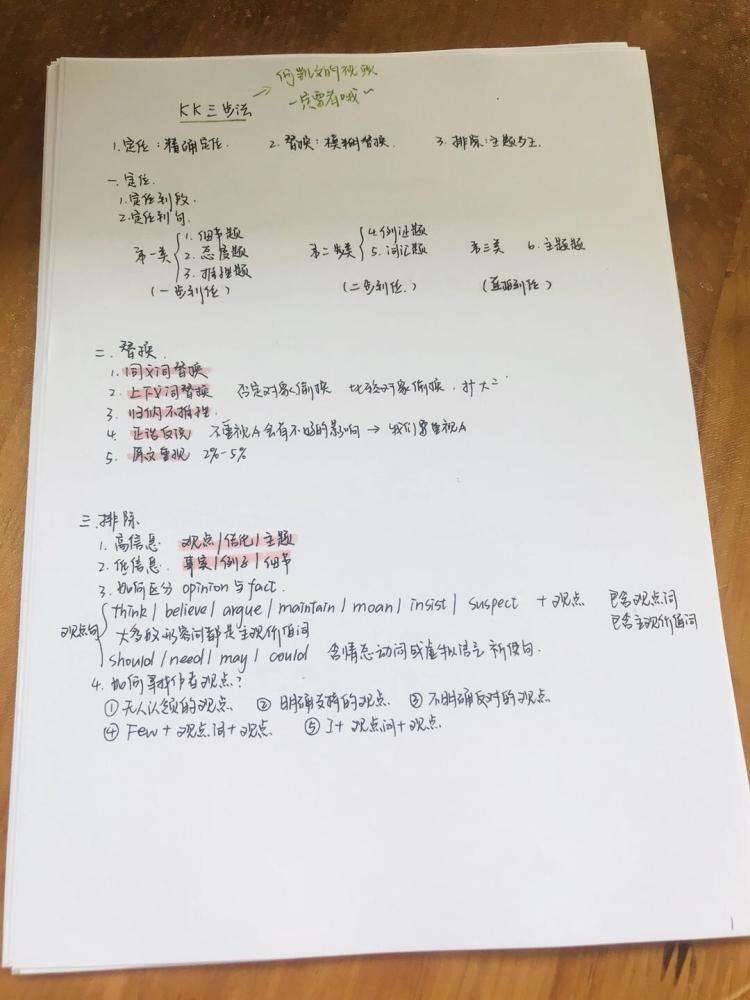 何凯文的视频
一定要看哦~
KK三步法
1. 定位：精确定位. 2. 替换：模糊替换. 3. 排除：主题为王.
一. 定位.
1. 定位到段.
2. 定位到句.
第一类 1. 细节题 2. 态度题 3. 推理题 (一步到位)
第二类 4. 例证题 5. 词汇题 (二步到位.)
第三类 6. 主题题 (直接到位)
二. 替换.
1. 同义词替换
2. 上下义词替换 否定对象偷换 比较对象偷换. 扩大
3. 归纳不推理.
4. 正话反说 不重视A会有不好的影响 → 我们要重视A
5. 原文重现 2%-5%
三. 排除.
1. 高信息. 观点/结论/主题
2. 低信息. 事实/例子/细节
3. 如何区分 opinion 与 fact.
观点句 think / believe / argue / maintain / moan / insist / suspect + 观点 包含观点词
大多数形容词都是主观价值词 包含主观价值词
should / need / may / could 含情态动词或虚拟语气 祈使句.
4. 如何寻找作者观点?
① 无人认领的观点. ② 明确支持的观点. ③ 不明确反对的观点.
④ Few + 观点词 + 观点. ⑤ I + 观点词 + 观点.
1